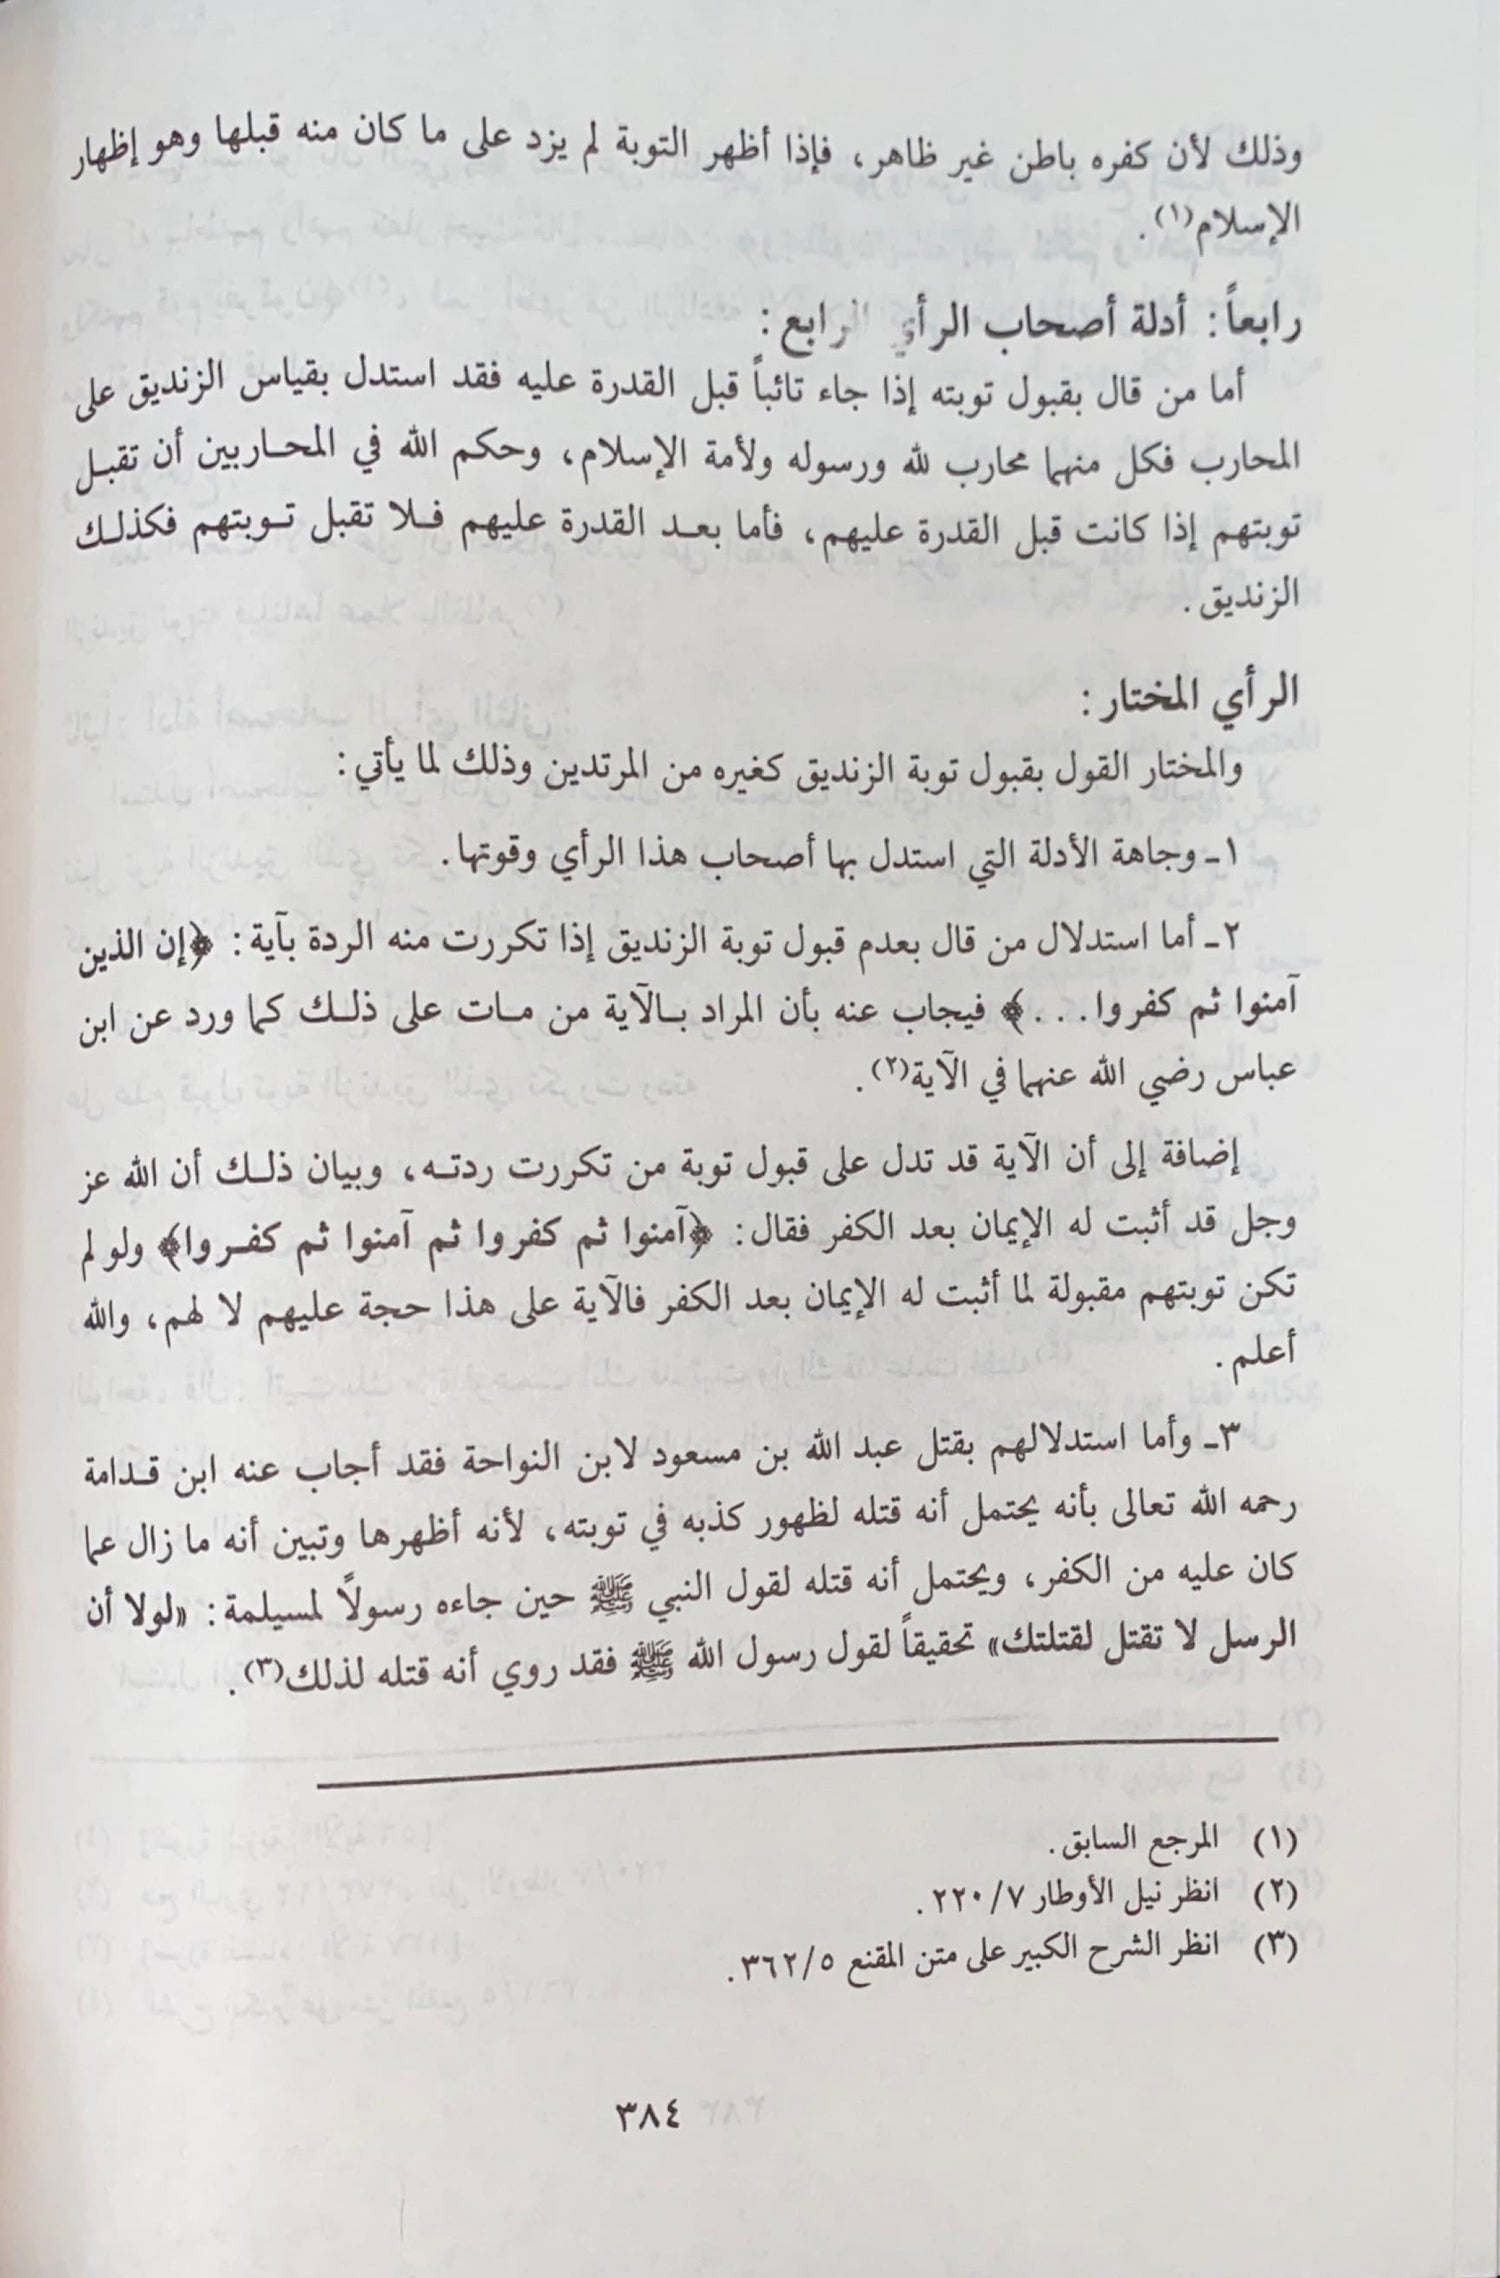 وذلك لأن كفره باطن غير ظاهر، فإذا أظهر التوبة لم يزد على ما كان منه قبلها وهو إظهار
الإسلام(١).
رابعاً: أدلة أصحاب الرأي الرابع:
أما من قال بقبول توبته إذا جاء تائباً قبل القدرة عليه فقد استدل بقياس الزنديق على
المحارب فكل منهما محارب لله ورسوله ولأمة الإسلام، وحكم الله في المحاربين أن تقبل
توبتهم إذا كانت قبل القدرة عليهم، فأما بعد القدرة عليهم فلا تقبل توبتهم فكذلك
الزنديق.
الرأي المختار:
والمختار القول بقبول توبة الزنديق كغيره من المرتدين وذلك لما يأتي:
١ـ وجاهة الأدلة التي استدل بها أصحاب هذا الرأي وقوتها.
٢ـ أما استدلال من قال بعدم قبول توبة الزنديق إذا تكررت منه الردة بآية: ﴿إن الذين
آمنوا ثم كفروا...﴾ فيجاب عنه بأن المراد بالآية من مات على ذلك كما ورد عن ابن
عباس رضي الله عنهما في الآية(٢).
إضافة إلى أن الآية قد تدل على قبول توبة من تكررت ردته، وبيان ذلك أن الله عز
وجل قد أثبت له الإيمان بعد الكفر فقال: ﴿آمنوا ثم كفروا ثم آمنوا ثم كفروا﴾ ولو لم
تكن توبتهم مقبولة لما أثبت له الإيمان بعد الكفر فالآية على هذا حجة عليهم لا لهم، والله
أعلم.
٣ـ وأما استدلالهم بقتل عبد الله بن مسعود لابن النواحة فقد أجاب عنه ابن قدامة
رحمه الله تعالى بأنه يحتمل أنه قتله لظهور كذبه في توبته، لأنه أظهرها وتبين أنه ما زال عما
كان عليه من الكفر، ويحتمل أنه قتله لقول النبي ﷺ حين جاءه رسولاً لمسيلمة: «لولا أن
الرسل لا تقتل لقتلتك» تحقيقاً لقول رسول الله ﷺ فقد روي أنه قتله لذلك(٣).
(١) المرجع السابق.
(٢) انظر نيل الأوطار ٢٢٠/٧.
(٣) انظر الشرح الكبير على متن المقنع ٣٦٢/٥.
٣٨٤